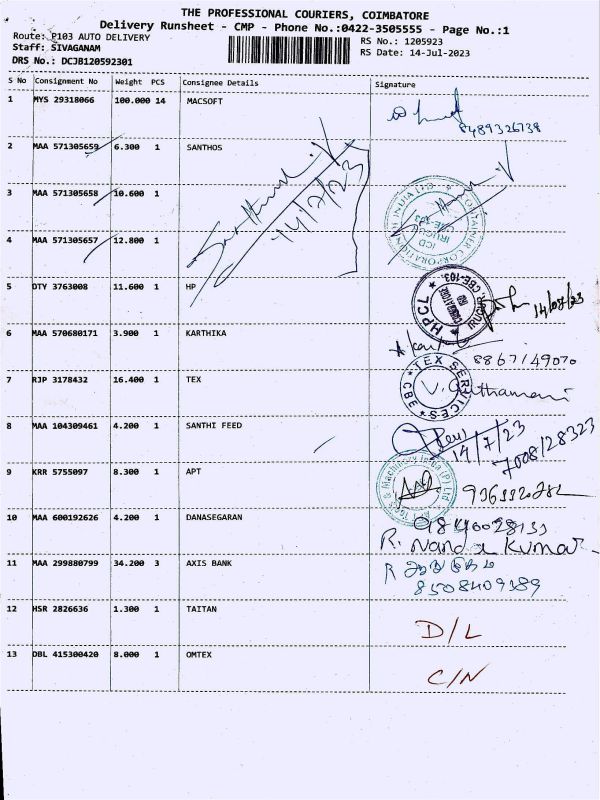 THE PROFESSIONAL COURIERS, COIMBATORE
Delivery Runsheet - CMP - Phone No.:0422-3505555 - Page No.:1
Route: P103 AUTO DELIVERY
Staff: SIVAGANAM
DRS No.: DCJB120592301
RS No.: 1205923
RS Date: 14-Jul-2023
S No Consignment No Weight PCS Consignee Details Signature
1 MYS 29318066 100.000 14 MACSOFT
8489326738
2 MAA 571305659 6.300 1 SANTHOS
14/7/23
3 MAA 571305658 10.600 1
4 MAA 571305657 12.800 1
5 DTY 3763008 11.600 1 HP
HPCL
14/07/23
6 MAA 570680171 3.900 1 KARTHIKA
8867149070
7 RJP 3178432 16.400 1 TEX
TEX SERVICES CBE
V.
8 MAA 104309461 4.200 1 SANTHI FEED
14/7/23
7008128323
9 KRR 5755097 8.300 1 APT
10 MAA 600192626 4.200 1 DANASEGARAN
R. Nanda Kumar
11 MAA 299880799 34.200 3 AXIS BANK
R
8508409389
12 HSR 2826636 1.300 1 TAITAN
D/L
13 DBL 415300420 8.000 1 OMTEX
C/N